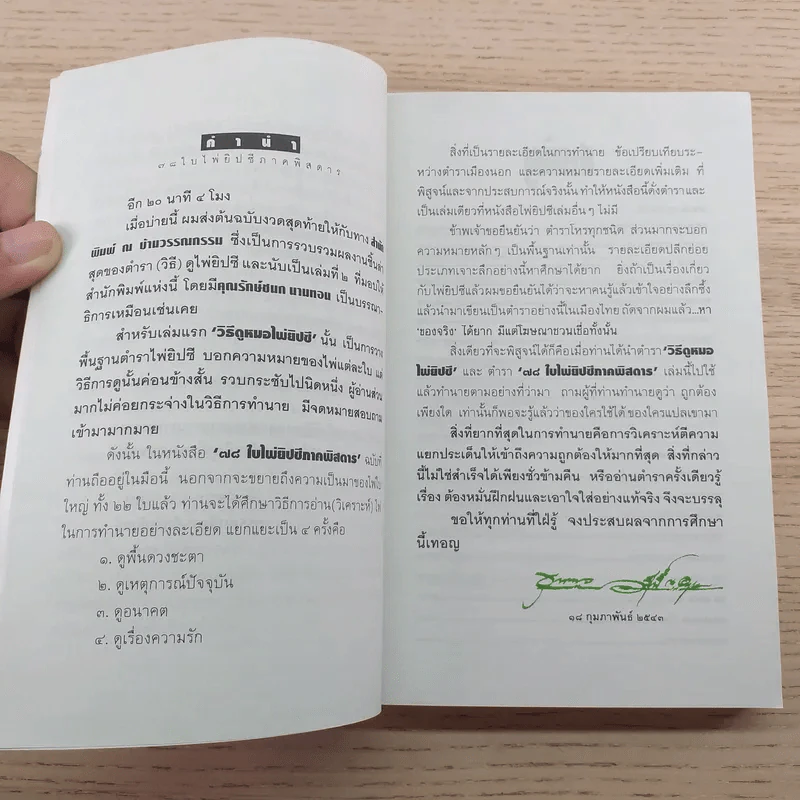 คำนำ
๗๘ ใบไพ่ยิปซีภาคพิสดาร
อีก ๒๐ นาที ๔ โมง
เมื่อบ่ายนี้ ผมส่งต้นฉบับงวดสุดท้ายให้กับทาง สำนัก
พิมพ์ ณ บ้านวรรณกรรม ซึ่งเป็นการรวบรวมผลงานชิ้นล่า
สุดของตำรา (วิธี) ดูไพ่ยิปซี และนับเป็นเล่มที่ ๒ ที่มอบให้
สำนักพิมพ์แห่งนี้ โดยมีคุณรักษ์ชนก นามทอน เป็นบรรณา-
ธิการเหมือนเช่นเคย
สำหรับเล่มแรก 'วิธีดูหมอไพ่ยิปซี' นั้น เป็นการวาง
พื้นฐานตำราไพ่ยิปซี บอกความหมายของไพ่แต่ละใบ แต่
วิธีการดูนั้นค่อนข้างสั้น รวบกระชับไปนิดหนึ่ง ผู้อ่านส่วน
มากไม่ค่อยกระจ่างในวิธีการทำนาย มีจดหมายสอบถาม
เข้ามามากมาย
ดังนั้น ในหนังสือ '๗๘ ใบไพ่ยิปซีภาคพิสดาร' ฉบับที่
ท่านถืออยู่ในมือนี้ นอกจากจะขยายถึงความเป็นมาของไพ่ใบ
ใหญ่ ทั้ง ๒๒ ใบแล้ว ท่านจะได้ศึกษาวิธีการอ่าน(วิเคราะห์) ไพ่
ในการทำนายอย่างละเอียด แยกแยะเป็น ๔ ครั้งคือ
๑. ดูพื้นดวงชะตา
๒. ดูเหตุการณ์ปัจจุบัน
๓. ดูอนาคต
๔. ดูเรื่องความรัก
สิ่งที่เป็นรายละเอียดในการทำนาย ข้อเปรียบเทียบระ-
หว่างตำราเมืองนอก และความหมายรายละเอียดเพิ่มเติม ที่
พิสูจน์และจากประสบการณ์จริงนั้น ทำให้หนังสือนี้ดั่งตำราและ
เป็นเล่มเดียวที่หนังสือไพ่ยิปซีเล่มอื่นๆ ไม่มี
ข้าพเจ้าขอยืนยันว่า ตำราโหรทุกชนิด ส่วนมากจะบอก
ความหมายหลักๆ เป็นพื้นฐานเท่านั้น รายละเอียดปลีกย่อย
ประเภทเจาะลึกอย่างนี้หาศึกษาได้ยาก ยิ่งถ้าเป็นเรื่องเกี่ยว
กับไพ่ยิปซีแล้วผมขอยืนยันได้ว่าจะหาคนรู้แล้วเข้าใจอย่างลึกซึ้ง
แล้วนำมาเขียนเป็นตำราอย่างนี้ในเมืองไทย ถัดจากผมแล้ว...หา
'ของจริง' ได้ยาก มีแต่โฆษณาชวนเชื่อทั้งนั้น
สิ่งเดียวที่จะพิสูจน์ได้ก็คือเมื่อท่านได้นำตำรา 'วิธีดูหมอ
ไพ่ยิปซี' และ ตำรา '๗๘ ใบไพ่ยิปซีภาคพิสดาร' เล่มนี้ไปใช้
แล้วทำนายตามอย่างที่ว่ามา ถามผู้ที่ท่านทำนายดูว่า ถูกต้อง
เพียงใด เท่านั้นก็พอจะรู้แล้วว่าของใครใช้ได้ ของใครแปลเขามา
สิ่งที่ยากที่สุดในการทำนายคือการวิเคราะห์ตีความ
แยกประเด็นให้เข้าถึงความถูกต้องให้มากที่สุด สิ่งที่กล่าว
นี้ไม่ใช่สำเร็จได้เพียงชั่วข้ามคืน หรืออ่านตำราครั้งเดียวรู้
เรื่อง ต้องหมั่นฝึกฝนและเอาใจใส่อย่างแท้จริง จึงจะบรรลุ
ขอให้ทุกท่านที่ใฝ่รู้ จงประสบผลจากการศึกษา
นี้เทอญ
๑๘ กุมภาพันธ์ ๒๕๔๓